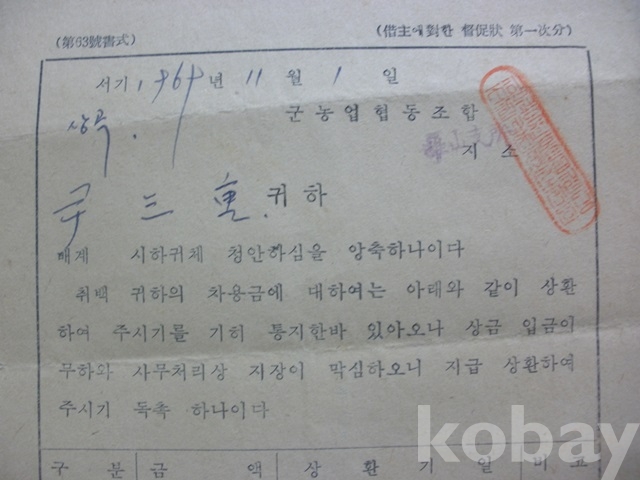 (第63號書式) (借主에對한 督促狀 第一次分)
서기 1964년 11월 1일
상곡.
군농업협동조합
지소
귀하
배계 시하귀체 청안하심을 앙축하나이다
취백 귀하의 차용금에 대하여는 아래와 같이 상환
하여 주시기를 기히 통지한바 있아오나 상금 입금이
무하와 사무처리상 지장이 막심하오니 지급 상환하여
주시기 독촉 하나이다
구 분 금 액 상 환 기 일 비 고
kobay